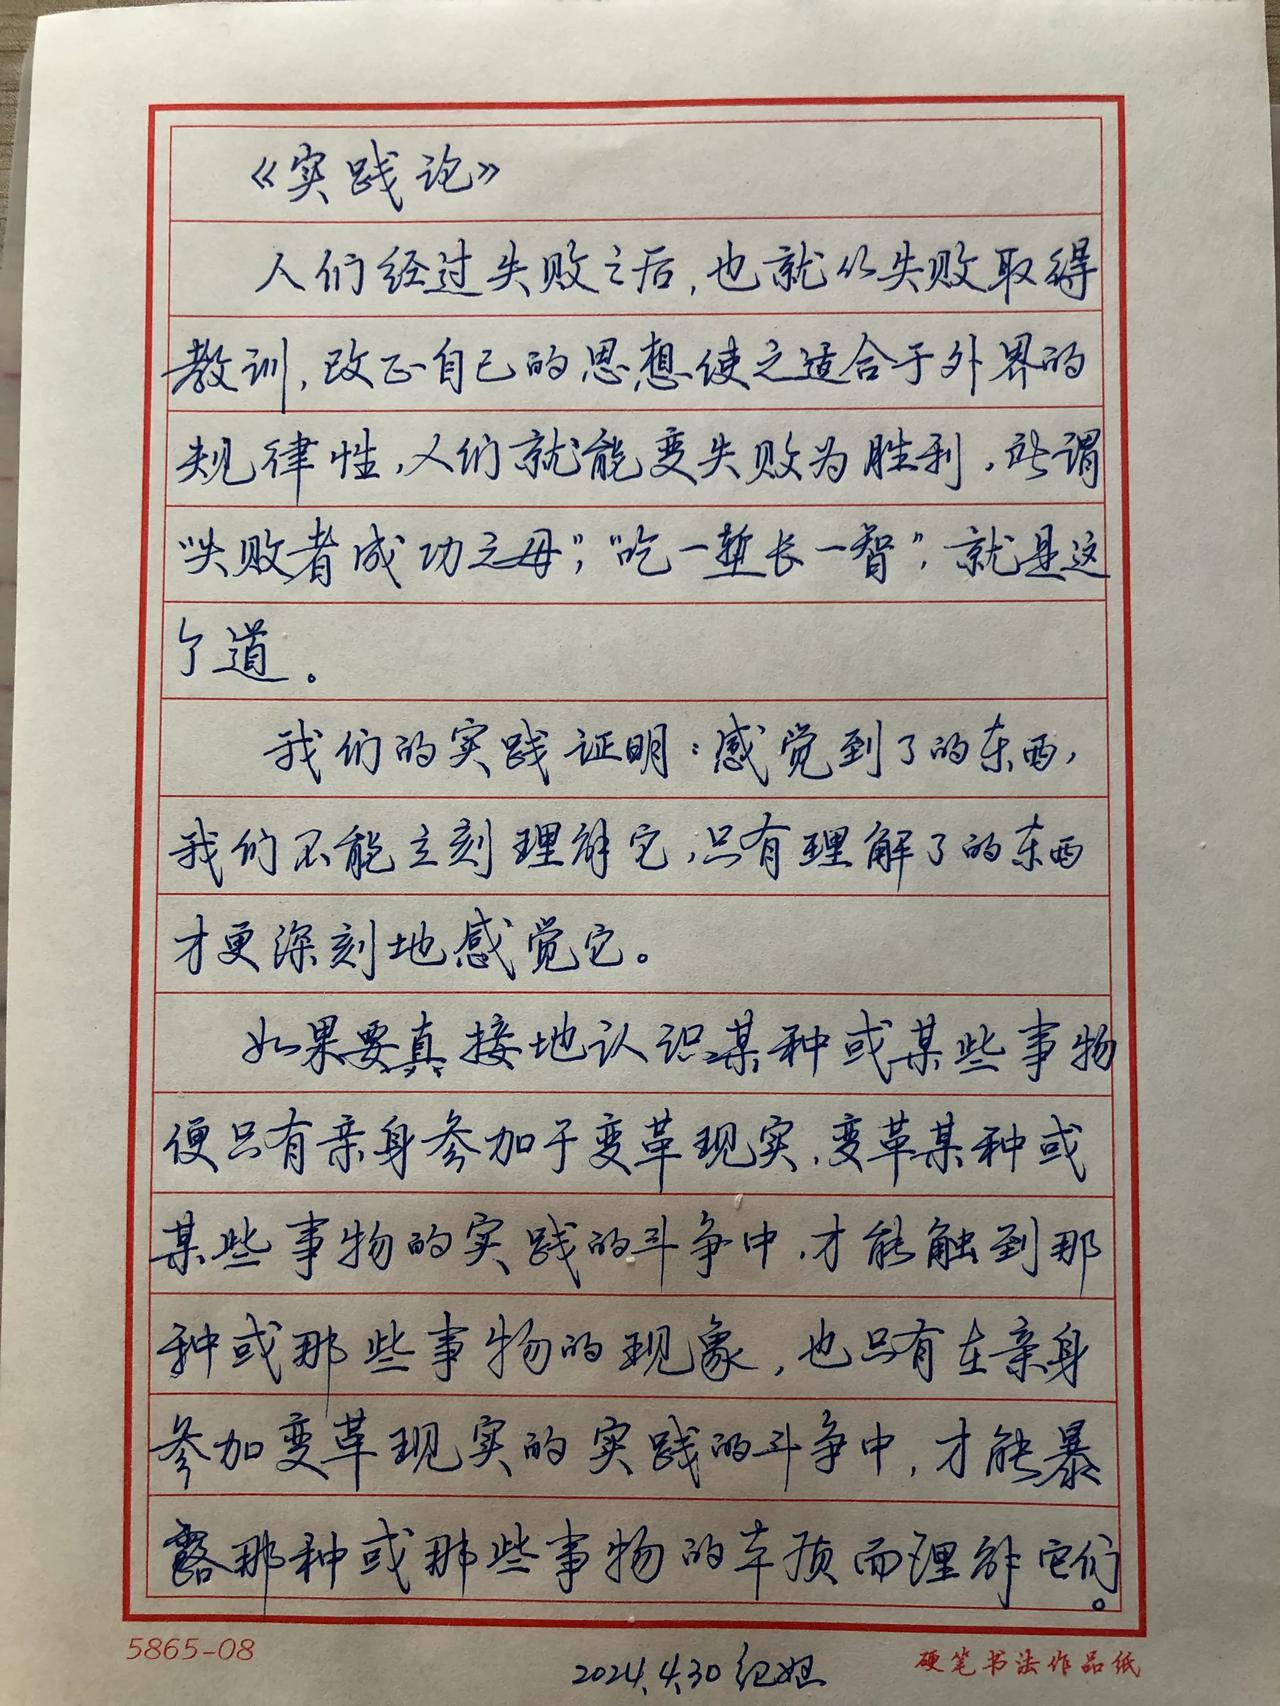 《实践论》
人们经过失败之后,也就从失败取得
教训,改正自己的思想使之适合于外界的
规律性,人们就能变失败为胜利,所谓
“失败者成功之母”,“吃一堑长一智”,就是这
个道。
我们的实践证明:感觉到了的东西,
我们不能立刻理解它,只有理解了的东西
才更深刻地感觉它。
如果要真接地认识某种或某些事物
便只有亲身参加于变革现实,变革某种或
某些事物的实践的斗争中,才能触到那
种或那些事物的现象,也只有在亲身
参加变革现实的实践的斗争中,才能暴
露那种或那些事物的本质而理解它们。
5865-08
硬笔书法作品纸
2024.4.30